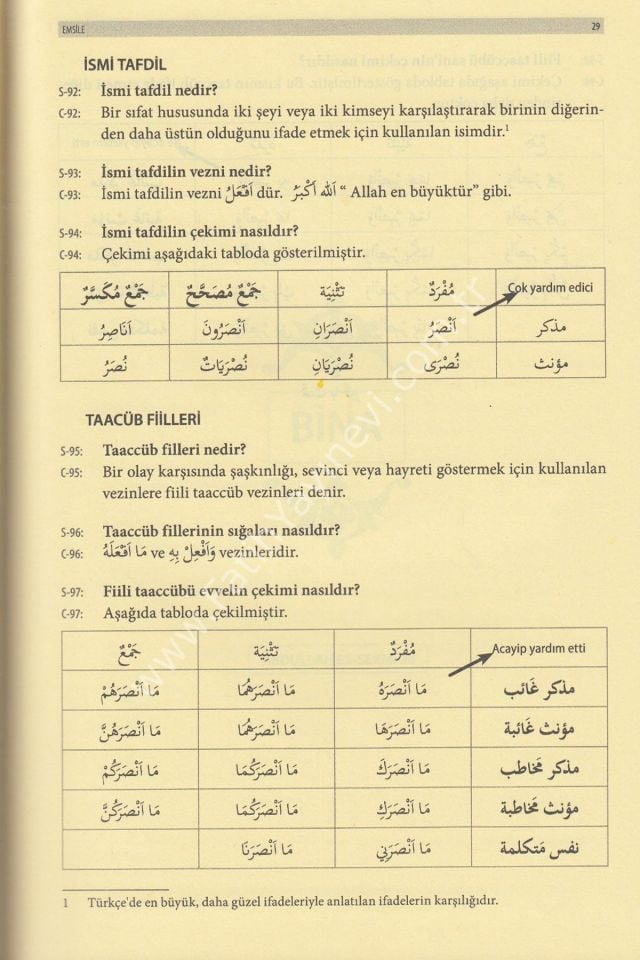 EMSİLE 29
İSMİ TAFDİL
S-92: İsmi tafdil nedir?
C-92: Bir sıfat hususunda iki şeyi veya iki kimseyi karşılaştırarak birinin diğerin-
den daha üstün olduğunu ifade etmek için kullanılan isimdir.1
S-93: İsmi tafdilin vezni nedir?
C-93: İsmi tafdilin vezni اَفْعَلُ dür. اَللّٰه اَكْبَرُ “ Allah en büyüktür” gibi.
S-94: İsmi tafdilin çekimi nasıldır?
C-94: Çekimi aşağıdaki tabloda gösterilmiştir.
جَمْعٌ مُكَسَّرٌ جَمْعٌ مُصَحَّحٌ تَثْنِيَة مُفْرَدٌ Çok yardım edici
اَنَاصِرُ اَنْصَرُونَ اَنْصَرَانِ اَنْصَرُ مذكر
نُصَرُ نُصْرَيَاتٌ نُصْرَيَانِ نُصْرَى مؤنث
TAACÜB FİİLLERİ
S-95: Taaccüb filleri nedir?
C-95: Bir olay karşısında şaşkınlığı, sevinci veya hayreti göstermek için kullanılan
vezinlere fiili taaccüb vezinleri denir.
S-96: Taaccüb fillerinin sığaları nasıldır?
C-96: مَا اَفْعَلَهُ ve وَاَفْعِلْ بِهِ vezinleridir.
S-97: Fiili taaccübü evvelin çekimi nasıldır?
C-97: Aşağıda tabloda çekilmiştir.
جَمْعٌ تَثْنِيَة مُفْرَدٌ Acayip yardım etti
مَا اَنْصَرَهُمْ مَا اَنْصَرَهُمَا مَا اَنْصَرَهُ مذكر غَائب
مَا اَنْصَرَهُنَّ مَا اَنْصَرَهُمَا مَا اَنْصَرَهَا مؤنث غَائبة
مَا اَنْصَرَكُمْ مَا اَنْصَرَكُمَا مَا اَنْصَرَكَ مذكر مخَاطب
مَا اَنْصَرَكُنَّ مَا اَنْصَرَكُمَا مَا اَنْصَرَكِ مؤنث مخَاطبة
مَا اَنْصَرَنَا مَا اَنْصَرَنِي نفس مَتكلمة
1 Türkçe'de en büyük, daha güzel ifadeleriyle anlatılan ifadelerin karşılığıdır.